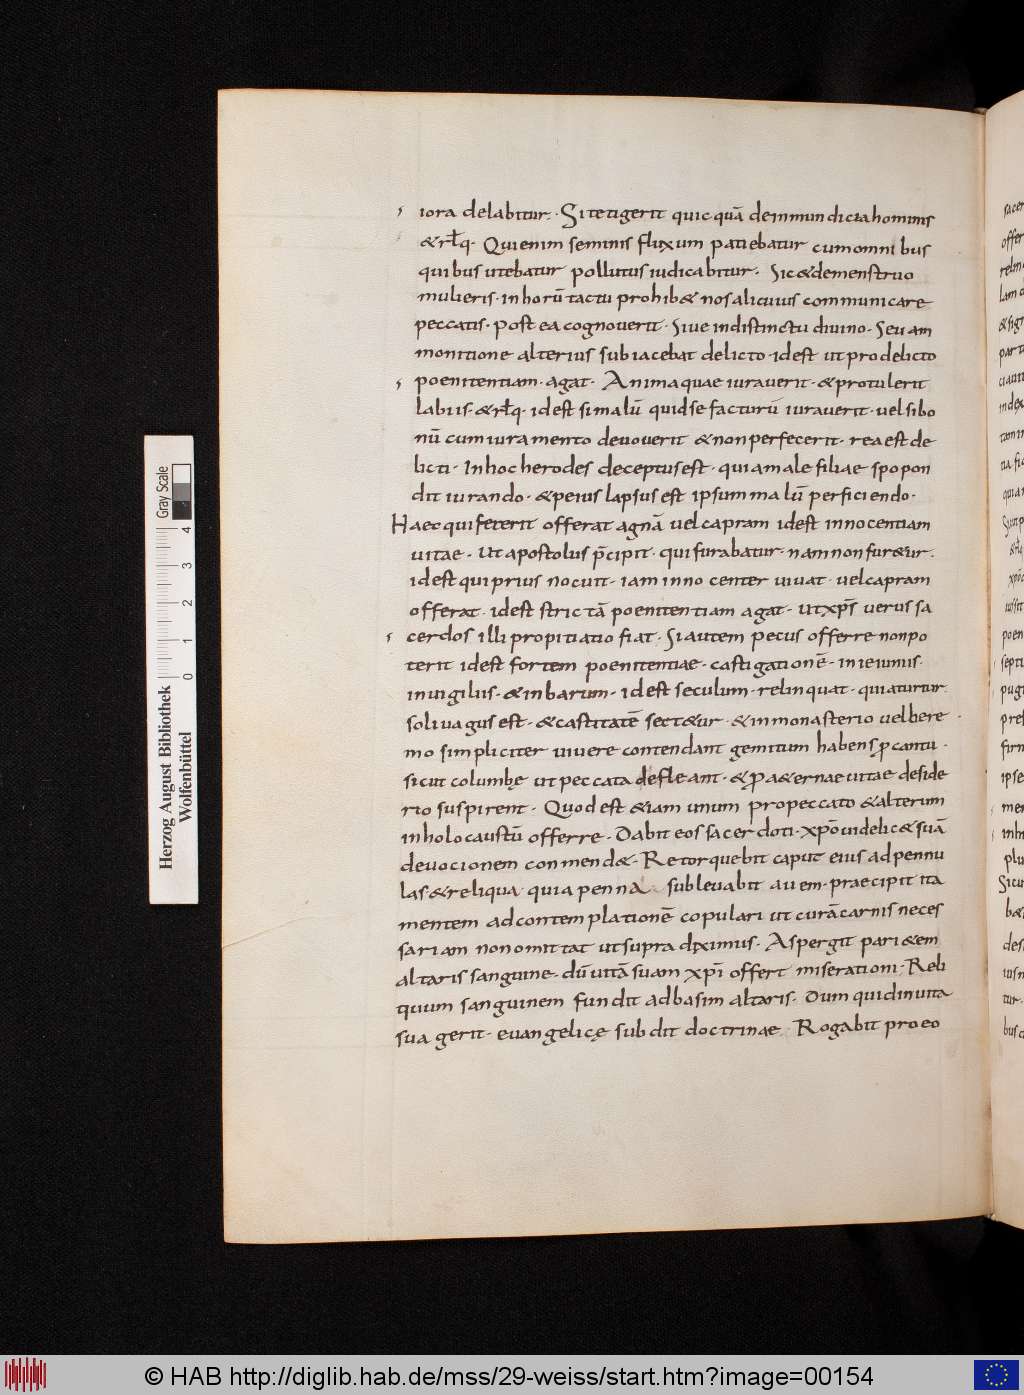 iora delabitur. Si tetigerit quicquā deinmundicia hominis
& rłq. Qui enim seminis fluxum patiebatur cum omnibus
quibus utebatur pollutus iudicabitur. Sic & de menstruo
mulieris. in horū tactu prohib& nos alicuius communicare
peccatis. post ea cognoverit. Sive indistinctu divino. Seu am
monitione alterius subiacebat delicto. id est ut pro delicto
poenitentiam. agat. Anima quae iuraverit. & protulerit
labiis. & rłq. id est si malū quid se facturū iuraverit. vel si bo
nū cum iuramento devoverit & non perfecerit. rea est de
licti. In hoc herodes deceptus est. quia male filiae spopon
dit iurando. & peius lapsus est ipsum malū perficiendo.
Haec qui fecerit offerat agnā vel capram id est innocentiam
vitae. ut apostolus p̄cipit. qui furabatur. nam non fur&ur.
id est qui prius nocuit. iam innocenter vivat. vel capram
offerat. id est strictā poenitentiam agat. ut xp̄s verus sa
cerdos illi propitiatio fiat. Si autem pecus offerre non po
terit id est fortem poenitentiae. castigationē. in ieiuniis.
in vigiliis. & in barum. id est seculum. relinquat. quia turtur.
solivagus est. & castitatē sect&ur. & in monasterio vel here
mo simpliciter vivere contendant gemitum habens p cantu.
sicut columbę ut peccata defleant. & p a&ernae vitae deside
rio suspirent. Quod est &iam unum pro peccato & alterum
in holocaustū offerre. Dabit eos sacerdoti. xp̄o videlic& suā
devocionem conmend&. Retorquebit caput eius ad pennu
las & reliqua quia penna sublevabit avem. praecipit ita
mentem ad contemplationē copulari ut curā carnis neces
sariam non omittat ut supra diximus. Aspergit pari&em
altaris sanguine. dū vitā suam xp̄i offert miserationi. Reli
quum sanguinem fundit ad basim altaris. Dum quid in vita
sua gerit. euangelicę subdit doctrinae. Rogabit pro eo
Gray Scale
0 1 2 3 4
Herzog August Bibliothek
Wolfenbüttel
© HAB http://diglib.hab.de/mss/29-weiss/start.htm?image=00154